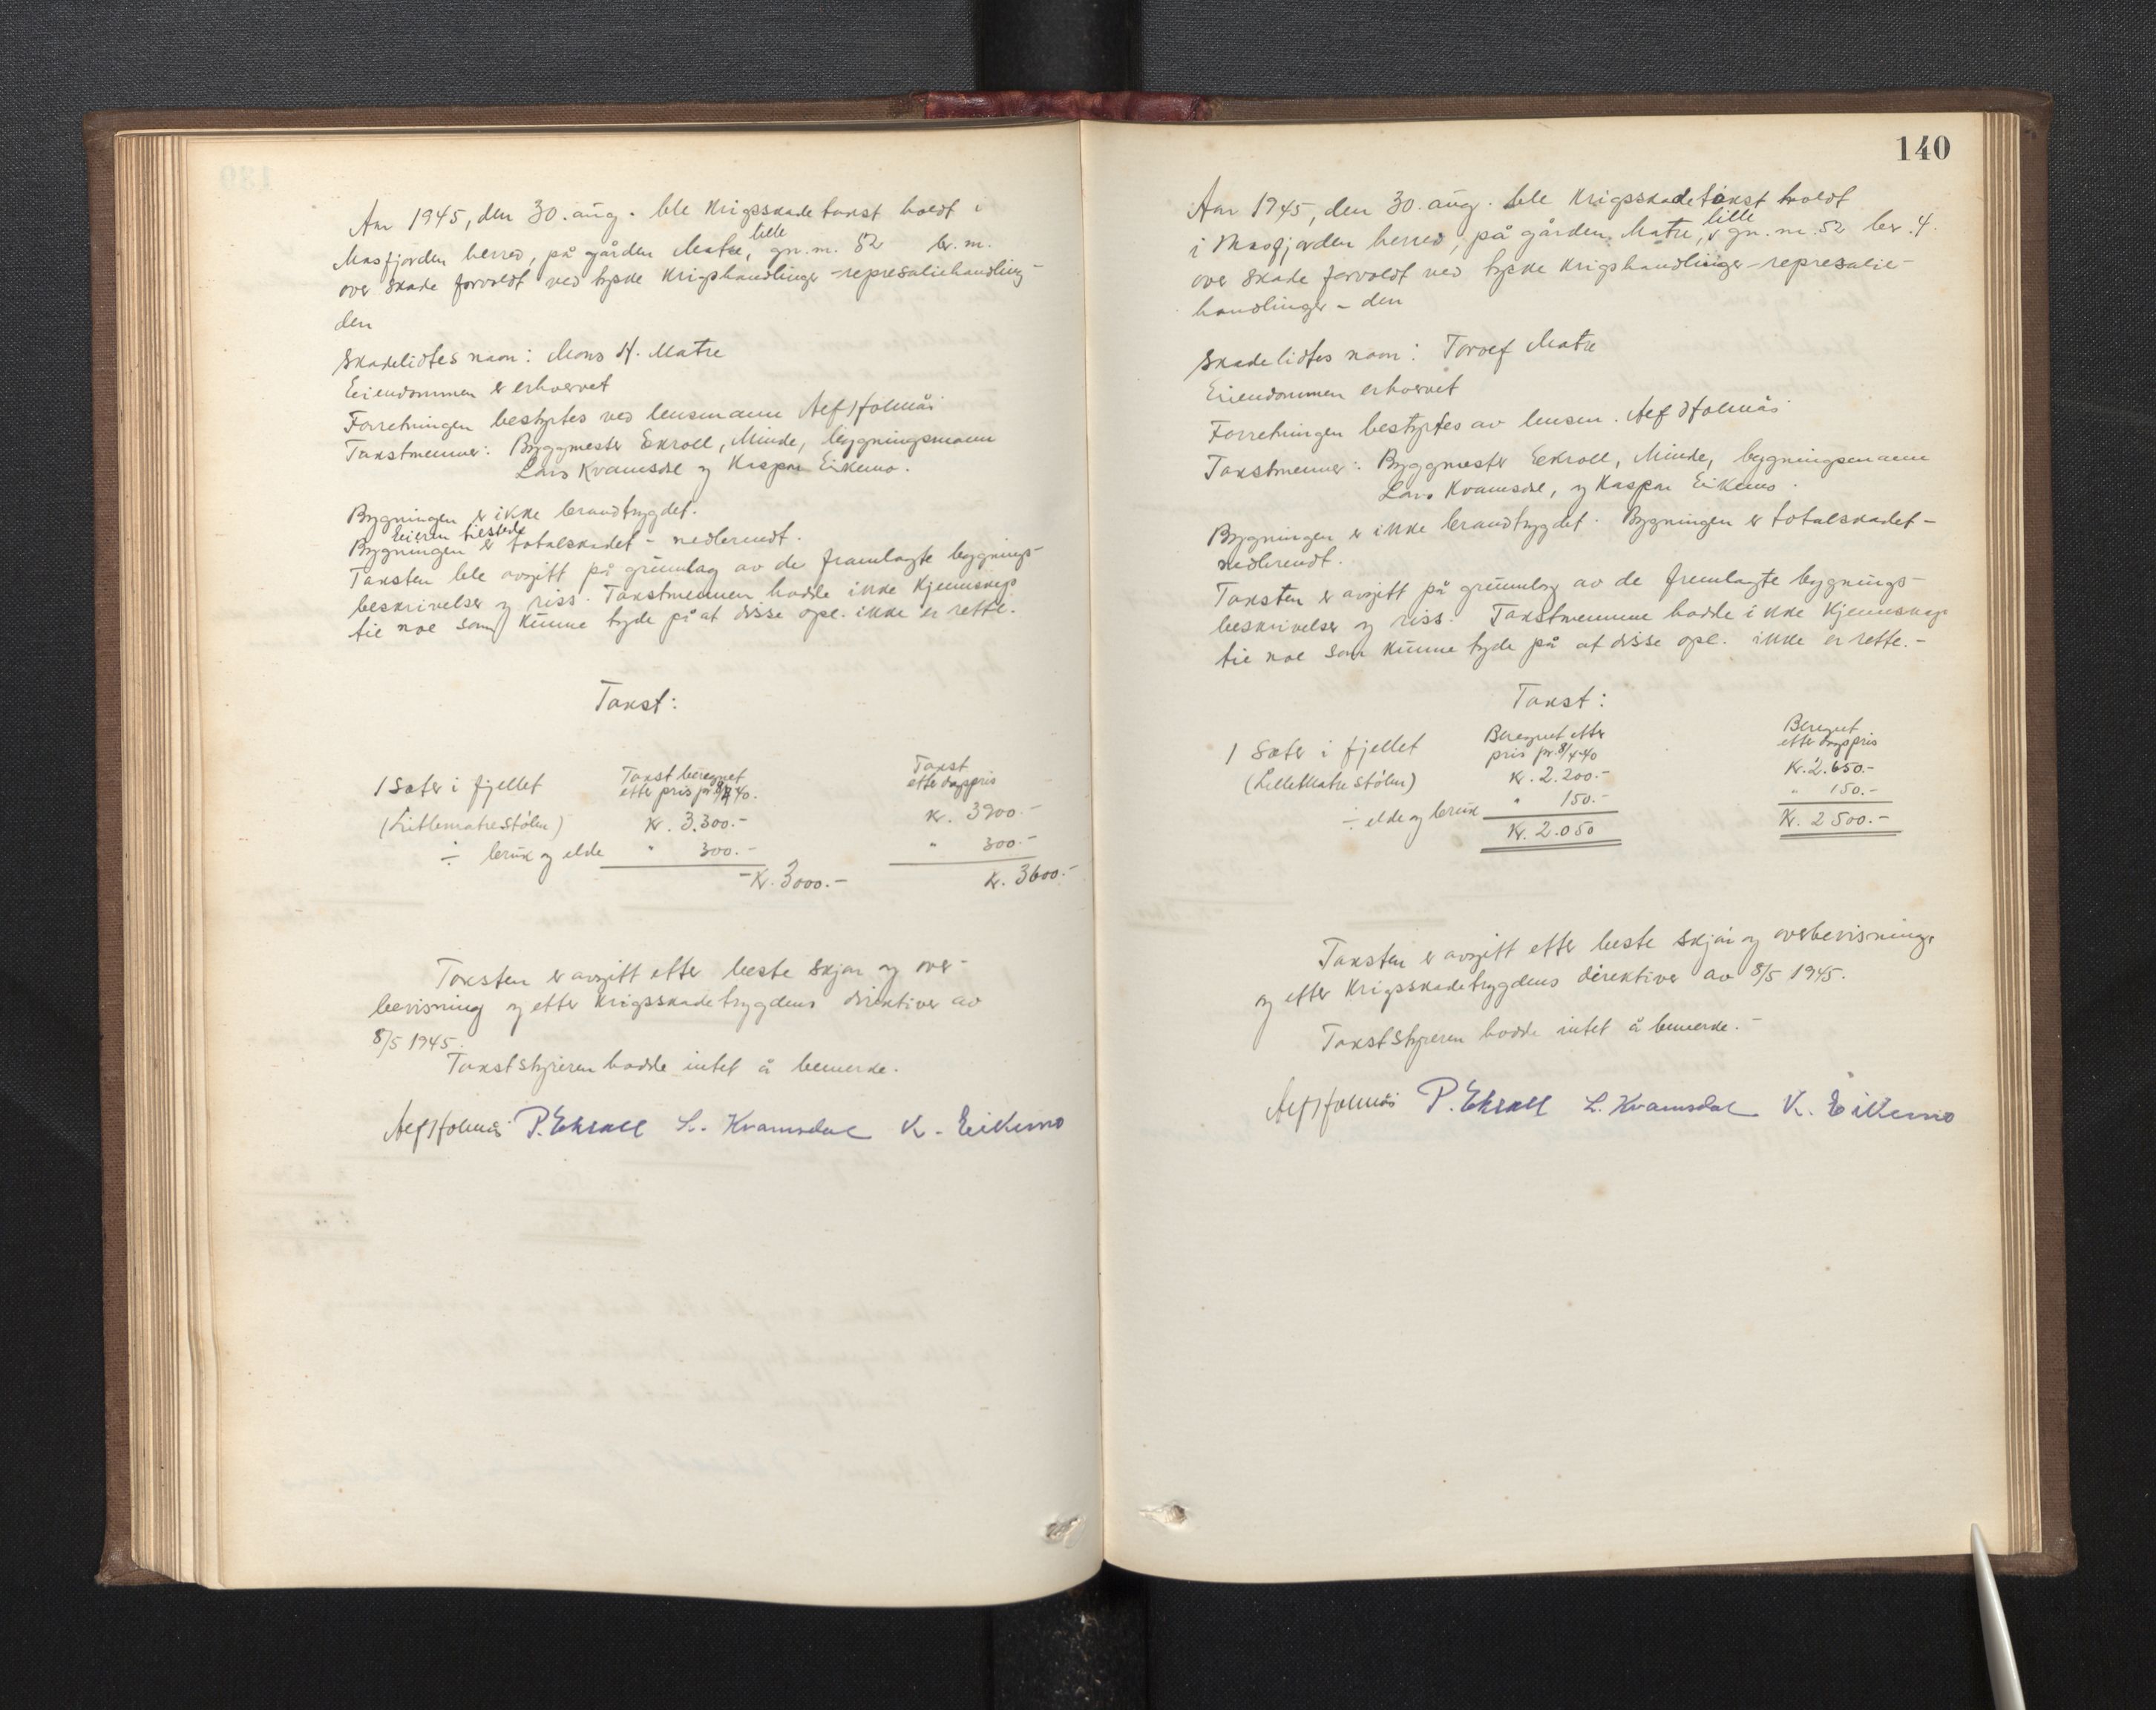 Aar 1945, den 30. aug. ble Krigsskadetakst holdt i
Masfjorden herred, på gården Matre, lille gn. nr. 52 br. nr.
over skade forvoldt ved tyske Krigshandlinger - represaliehandling-
den
Skadelidtes navn: Mons H. Matre
Eiendommen er erhvervet
Forretningen bestyrtes ved lensmann Alf Holmås
Takstmenner: Byggmester Ekroll, Minde, bygningsmann
Lars Kvamsdal og Kaspar Eikemo.
Bygningen er ikke brandtrygdet.
Eieren tilstede
Bygningen er totalskadet - nedbrendt.
Taksten ble avgitt på grunnlag av de framlagte bygnings-
beskrivelser og riss. Takstmennen hadde ikke Kjennskap
til noe som kunne tyde på at disse opl. ikke er rette.
Takst:
1 Sæter i fjellet Takst beregnet etter pris pr. 8/4 40. Takst etter dagpris
(Litlematrestølen) Kr. 3.300.- Kr. 3900.-
÷ bruk og elde " 300.- " 300.-
Kr. 3000.- Kr. 3600.-
Taksten er avgitt etter beste skjøn og over-
bevisning og etter Krigsskadetrygdens direktiver av
8/5 1945.
Takststyreren hadde intet å bemerke.
Alf Holmås P. Ekroll L. Kvamsdal K. Eikemo
140
Aar 1945, den 30. aug. ble Krigsskadetakst holdt
i Masfjorden herred, på gården Matre, lille gn. nr. 52 br. 4.
over skade forvoldt ved tyske Krigshandlinger - represalie-
handlinger - den
Skadelidtes navn: Torolf Matre
Eiendommen erhvervet
Forretningen bestyrtes av lensm. Alf Holmås
Takstmenner: Byggmester Eekroll, Minde, bygningsmann
Lars Kvamsdal, og Kaspar Eikemo.
Bygningen er ikke brandtrygdet. Bygningen er totalskadet -
nedbrendt.
Taksten er avgitt på grunnlag av de fremlagte bygnings-
beskrivelser og riss. Takstmennene hadde ikke Kjennskap
til noe som kunne tyde på at disse opl. ikke er rette.-
Takst:
1 Sæter i fjellet Beregnet etter pris pr. 8/4 40 Beregnet etter dagspris
(Lillematrestølen) Kr. 2.200.- Kr. 2.650.-
÷ elde og bruk " 150.- " 150.-
Kr. 2.050 Kr. 2500.-
Taksten er avgitt etter beste skjøn og overbevisning
og etter Krigsskadetrygdens direktiver av 8/5 1945.
Takststyreren hadde intet å bemerke.-
Alf Holmås P. Ekroll L. Kvamsdal K. Eikemo